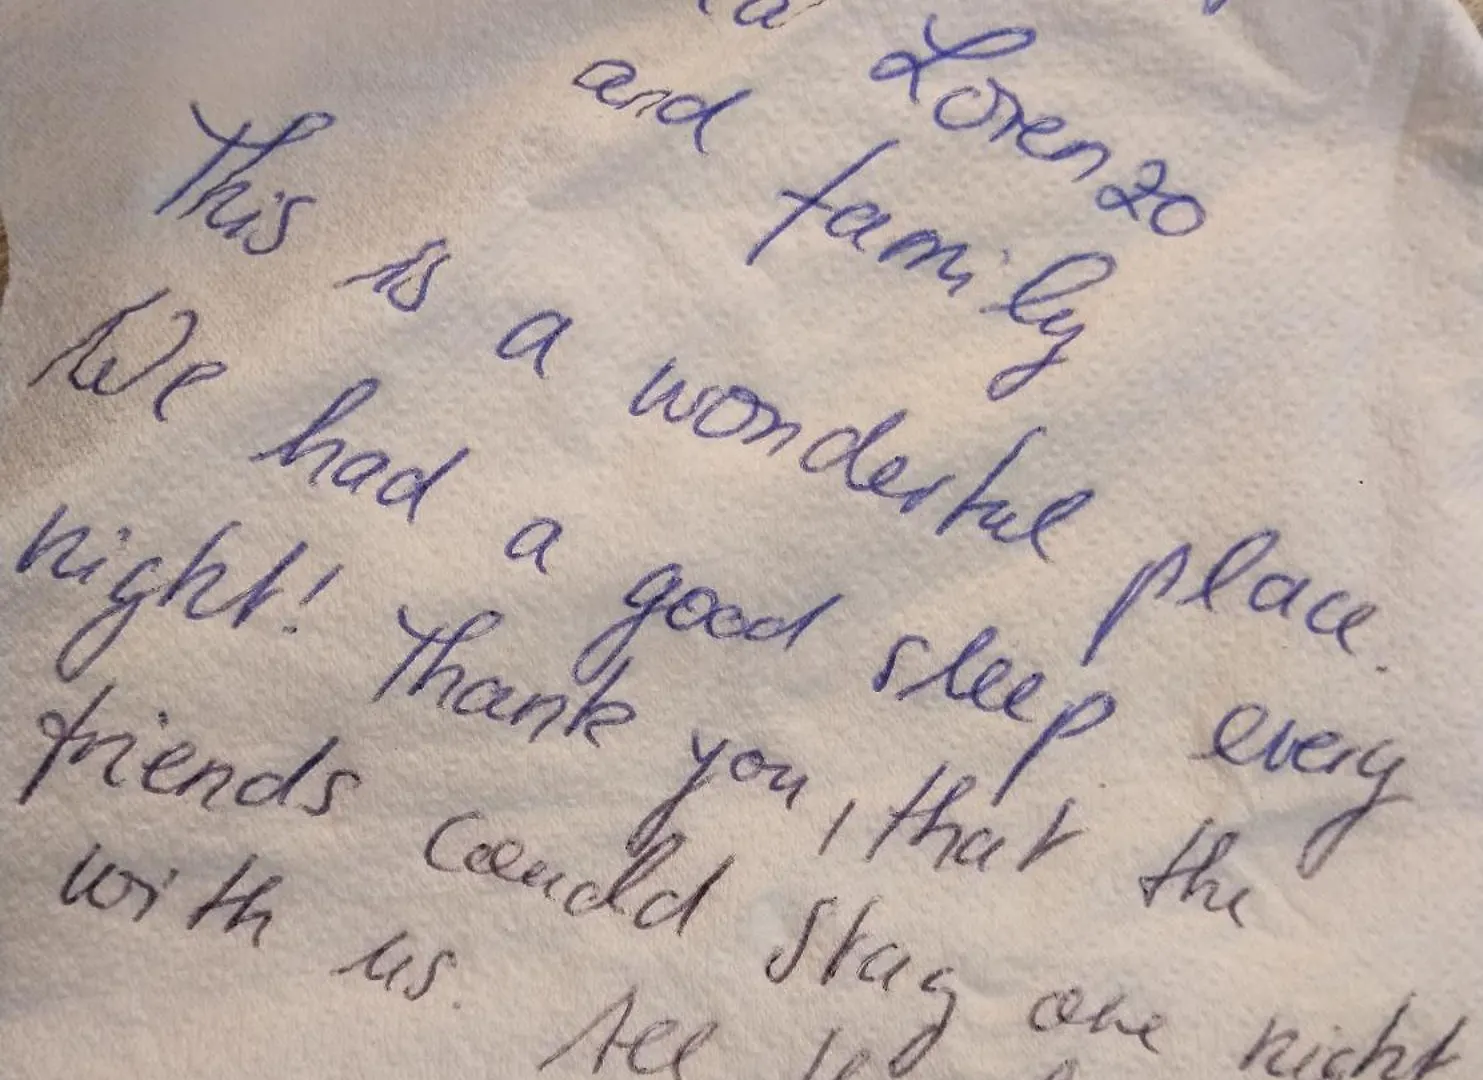 Lorenzo
and family
This is a wonderful place.
We had a good sleep every
night! Thank you, that the
friends could stay one night
with us. All